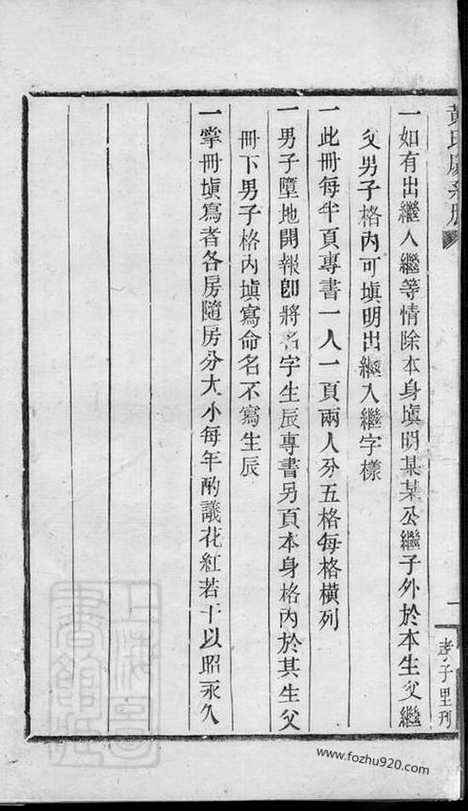 黃氏慶系冊
一
孝子里刊
一如有出繼入繼等情除本身塡明某某公繼子外於本生父繼
父男子格內可塡明出繼入繼字樣
一此冊每半頁專書一人一頁兩人分五格每格橫列
一男子墮地開報卽將名字生辰專書另頁本身格內於其生父
冊下男子格內塡寫命名不寫生辰
一掌冊塡寫者各房隨房分大小每年酌議花紅若干以昭永久
上海圖
書館藏
www.fozhu920.com